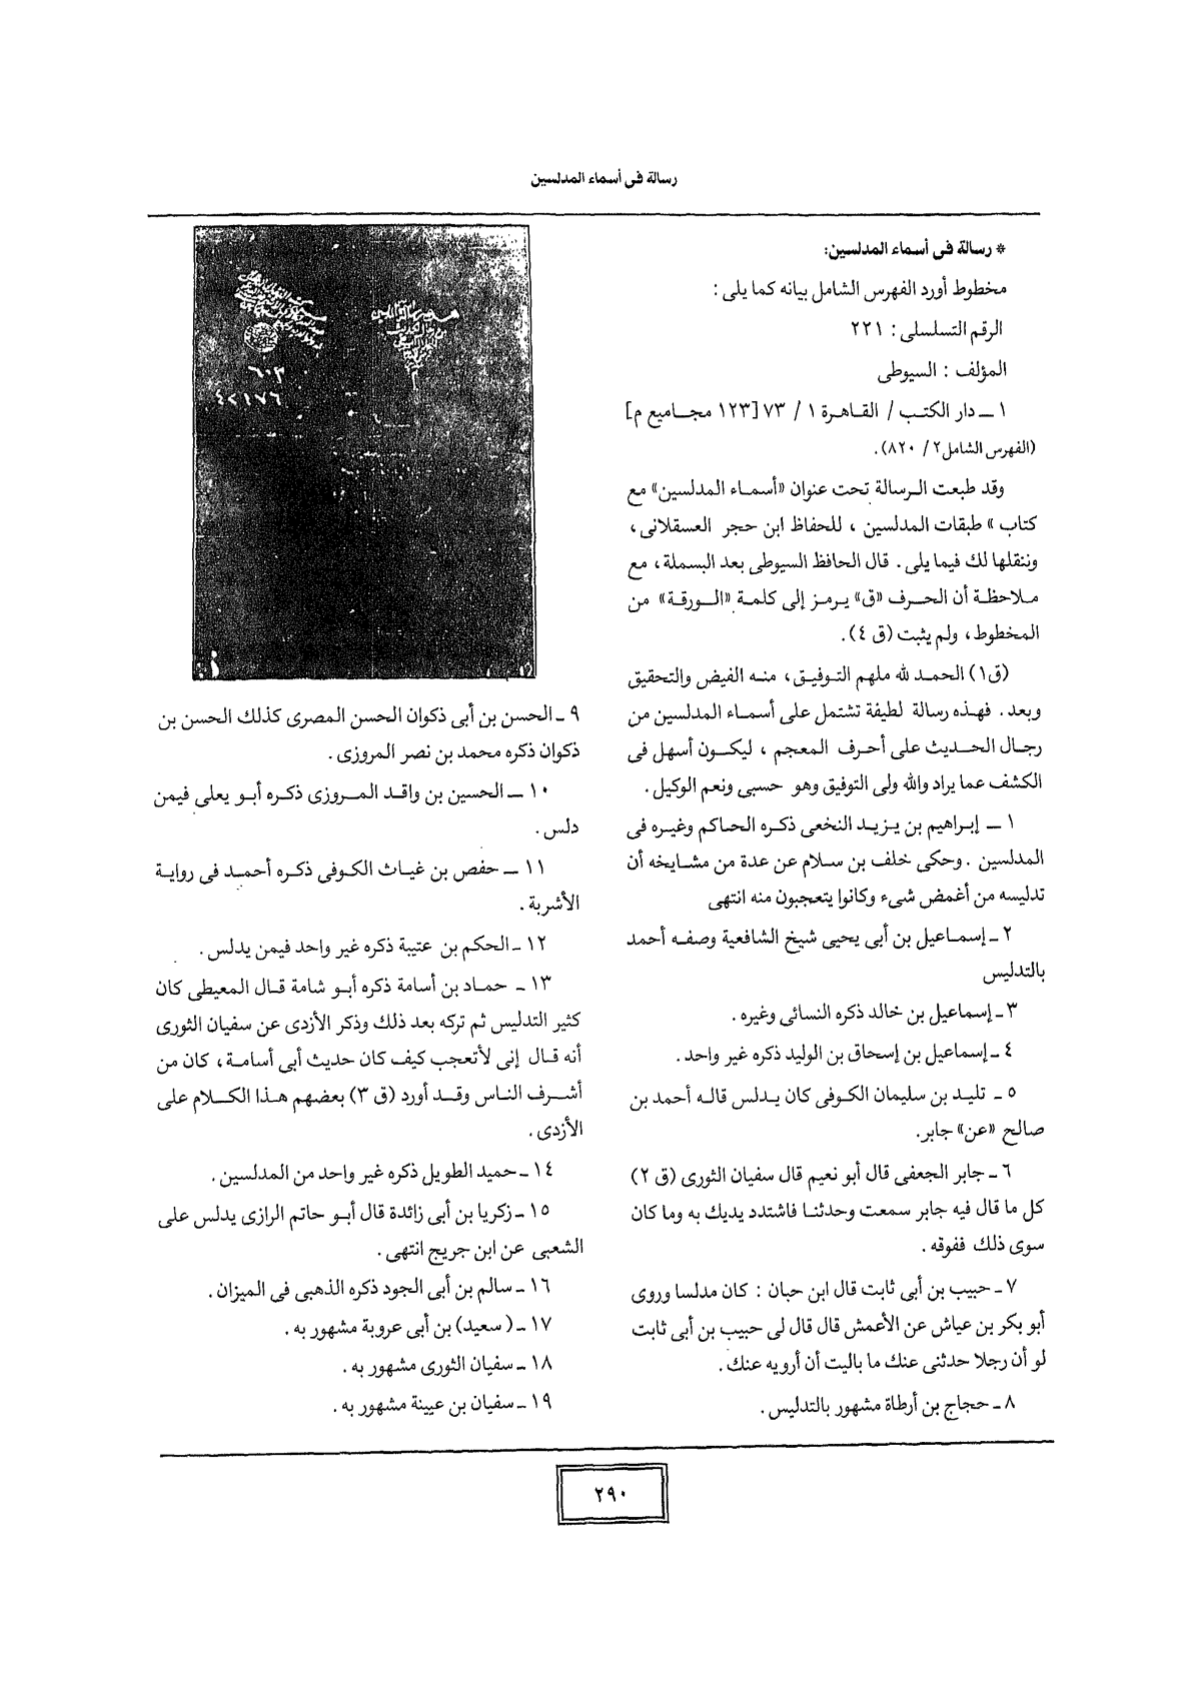 رسالة فى أسماء المدلسين
* رسالة فى أسماء المدلسين:
مخطوط أورد الفهرس الشامل بيانه كما يلى :
الرقم التسلسلى : ٢٢١
المؤلف : السيوطى
١ ــ دار الكتب / القاهرة ١ / ٧٣ [١٢٣ مجاميع م]
(الفهرس الشامل ٢ / ٨٢٠).
وقد طبعت الرسالة تحت عنوان «أسماء المدلسين» مع
كتاب » طبقات المدلسين ، للحفاظ ابن حجر العسقلانى ،
وننقلها لك فيما يلى . قال الحافظ السيوطى بعد البسملة ، مع
ملاحظة أن الحرف «ق» يرمز إلى كلمة «الورقة» من
المخطوط ، ولم يثبت (ق ٤).
(ق١) الحمد لله ملهم التوفيق ، منه الفيض والتحقيق
وبعد . فهذه رسالة لطيفة تشتمل على أسماء المدلسين من
رجال الحديث على أحرف المعجم ، ليكون أسهل فى
الكشف عما يراد والله ولى التوفيق وهو حسبى ونعم الوكيل .
١ ــ إبراهيم بن يزيد النخعى ذكره الحاكم وغيره فى
المدلسين . وحكى خلف بن سلام عن عدة من مشايخه أن
تدليسه من أغمض شىء وكانوا يتعجبون منه انتهى
٢ ــ إسماعيل بن أبى يحيى شيخ الشافعية وصفه أحمد
بالتدليس
٣ ــ إسماعيل بن خالد ذكره النسائى وغيره .
٤ ــ إسماعيل بن إسحاق بن الوليد ذكره غير واحد .
٥ ــ تليد بن سليمان الكوفى كان يدلس قاله أحمد بن
صالح «عن» جابر.
٦ ــ جابر الجعفى قال أبو نعيم قال سفيان الثورى (ق ٢)
كل ما قال فيه جابر سمعت وحدثنا فاشتدد يديك به وما كان
سوى ذلك ففوقه .
٧ ــ حبيب بن أبى ثابت قال ابن حبان : كان مدلسا وروى
أبو بكر بن عياش عن الأعمش قال قال لى حبيب بن أبى ثابت
لو أن رجلا حدثنى عنك ما باليت أن أرويه عنك .
٨ ــ حجاج بن أرطاة مشهور بالتدليس .
٦٠٣
٩ ــ الحسن بن أبى ذكوان الحسن المصرى كذلك الحسن بن
ذكوان ذكره محمد بن نصر المروزى .
١٠ ــ الحسين بن واقد المروزى ذكره أبو يعلى فيمن
دلس .
١١ ــ حفص بن غياث الكوفى ذكره أحمد فى رواية
الأشربة .
١٢ ــ الحكم بن عتيبة ذكره غير واحد فيمن يدلس .
١٣ ــ حماد بن أسامة ذكره أبو شامة قال المعيطى كان
كثير التدليس ثم تركه بعد ذلك وذكر الأزدى عن سفيان الثورى
أنه قال إنى لأتعجب كيف كان حديث أبى أسامة ، كان من
أشرف الناس وقد أورد (ق ٣) بعضهم هذا الكلام على
الأزدى .
١٤ ــ حميد الطويل ذكره غير واحد من المدلسين .
١٥ ــ زكريا بن أبى زائدة قال أبو حاتم الرازى يدلس على
الشعبى عن ابن جريج انتهى .
١٦ ــ سالم بن أبى الجود ذكره الذهبى فى الميزان .
١٧ ــ (سعيد) بن أبى عروبة مشهور به .
١٨ ــ سفيان الثورى مشهور به .
١٩ ــ سفيان بن عيينة مشهور به .
٢٩٠